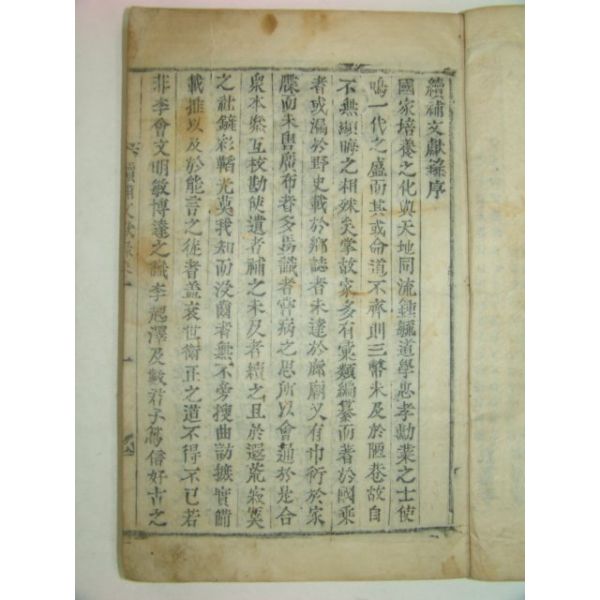 續補文獻錄序
國家培養之化與天地同流鍾毓道學忠孝勳業之士使
鳴一代之盛而其或命道不齊則三幣未及於陋巷故自
不無顯晦之相殊矣掌故家多有彙類編纂而著於國乘
者或漏於野史載於狀誌者未達於廊廟又有巾衍於家
牒而未曾廣布者多焉識者窃病之思所以會通於是合
衆本叅互校勘使遺者補之未及者續之且於遐荒寂寞
之社鏟彩韜光莫我知而沒齒者無不旁搜曲訪摭實備
載推以及於能言之徒者盖衰世衛正之道不得不已若
非李會文明敏博達之識李 澤及數君子篤信好古之
續補文獻錄 一